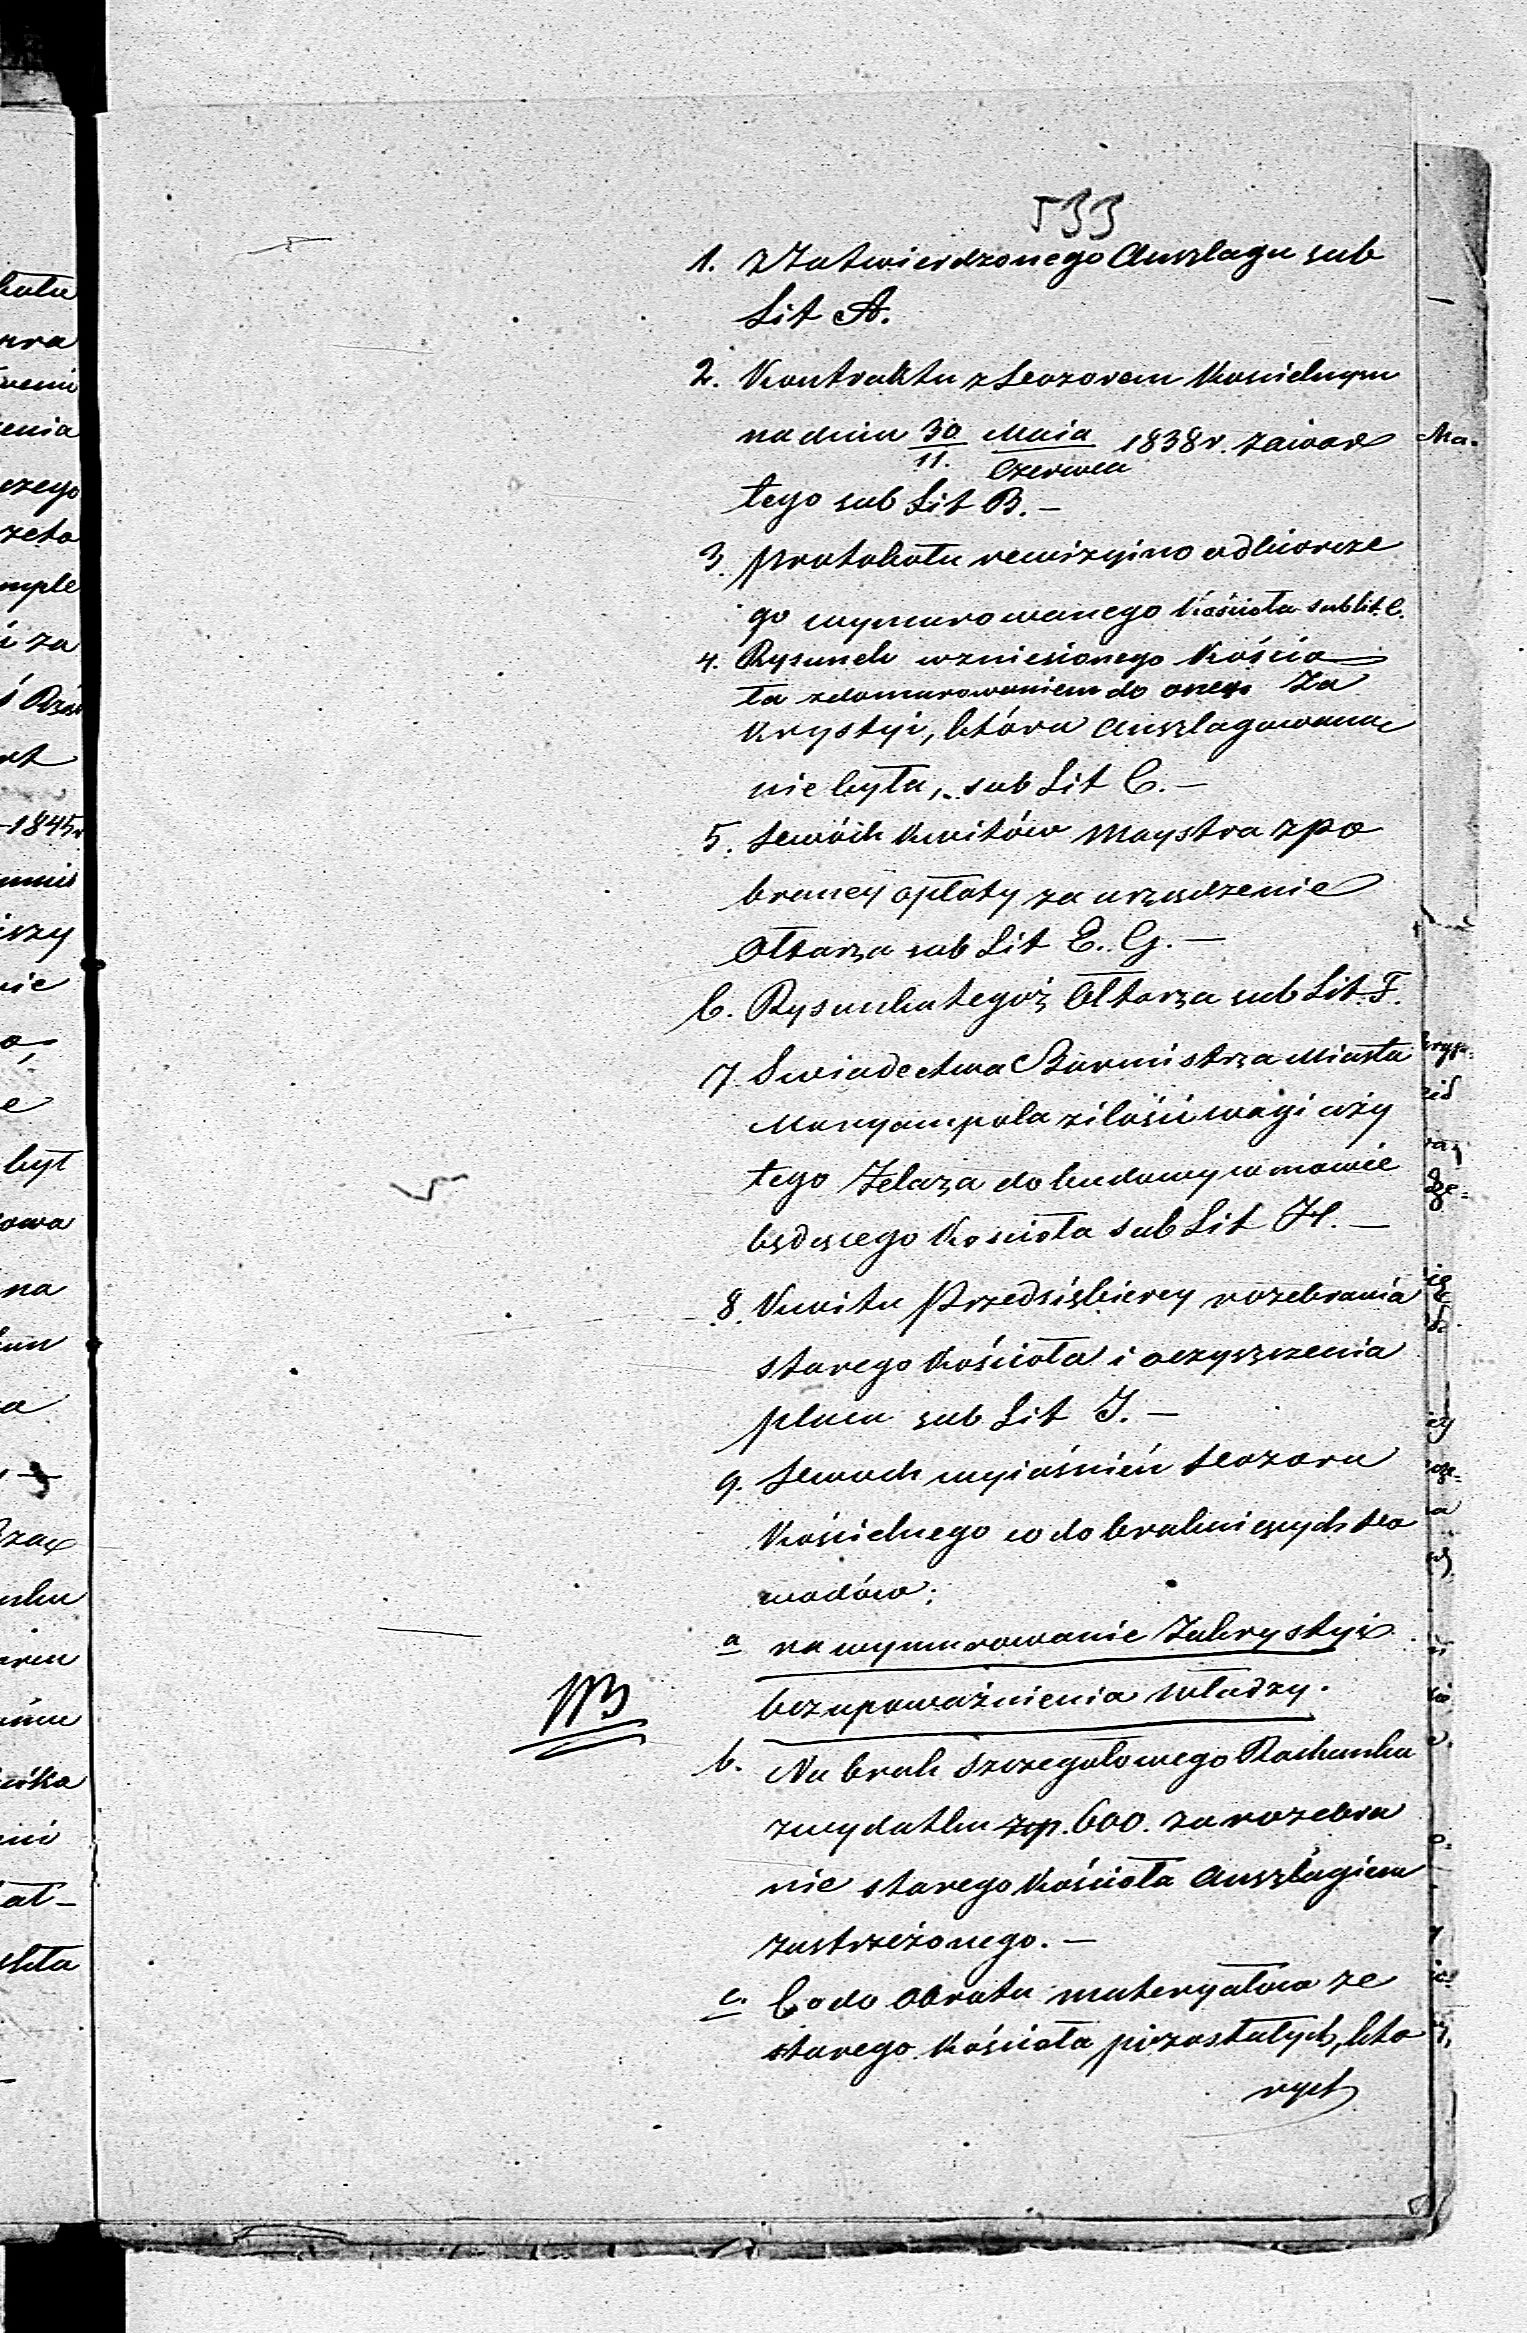 533
1. Zatwierdzonego Anszlagu sub
Lit A.
2. Kontraktu z Dozorem Kościelnym
na dniu 30/11. Maia/Czerwca 1838 r. zawar
tego sub Lit B. –
3. protokołu rewizyino odbiorcze
go wymurowanego Kościoła sub lit. C.
4. Rysunek wzniesionego Kościo
ła z domurowaniem do onego Za
krystyi, która Anszlagowana
nie była, sub Lit C. –
5. Dwóch kwitów Maystra z po
braney opłaty za urządzenie
Ołtarza sub Lit E. G. –
6. Rysunku tegoż Ołtarza sub Lit. F.
7. Swiadectwa Burmistrza Miasta
Maryampola z ilości wagi uży
tego Żelaza do budowy w mowie
będącego Kościoła sub Lit H. –
8. Kwitu Przedsiębiercy rozebrania
starego Kościoła i oczyszczenia
placu sub Lit J. –
9. Dwóch wyiaśnień Dozoru
Kościelnego co do brakuiących do
wodów;
a na wymurowanie Zakrystyi
bez upoważnienia Władzy.
NB
b. Na brak szczegołowego Rachunku
z wydatku zp. 600. za rozebra
nie starego Kościoła Anszlagiem
zastrzeżonego. –
c. Co do obrotu materyałow ze
starego Kościoła pozostałych, kto
rych